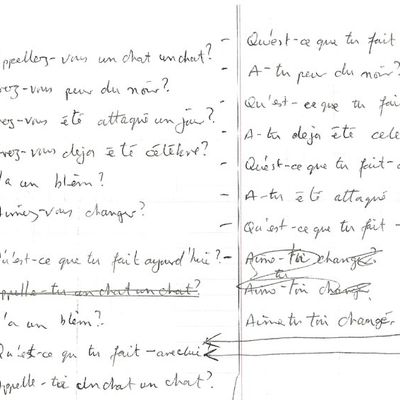 ppellez-vous un chat un chat?
vez-vous peur du noir?
vez-vous été attaqué un jour?
vez-vous deja été célèbre?
'a un blèm?
Aimez-vous changer?
Qu'est-ce que tu fait aujourd'hui?
Appelle-tu un chat un chat?
'a un blèm?
Qu'est-ce qu tu fait - avec lui
Appelle-toi un chat un chat?
- Qu'est-ce que tu fait
- A-tu peur du noir?
- Qu'est-ce que tu fai
- A-tu deja été cele
- Qu'est-ce que tu fait-
- A-tu été attaqué
- Qu'est-ce que tu fait -
- Aime-toi changé?
tu
Aime-toi changé.
Aime tu toi changé.